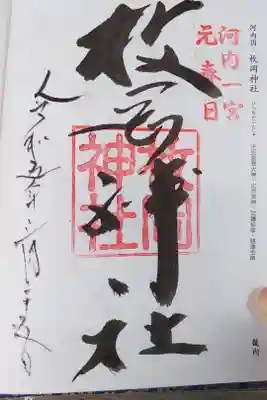 河内国 枚岡神社
河内一宮
元春日
枚岡神社
枚岡
神社
令和五年二月二十五日